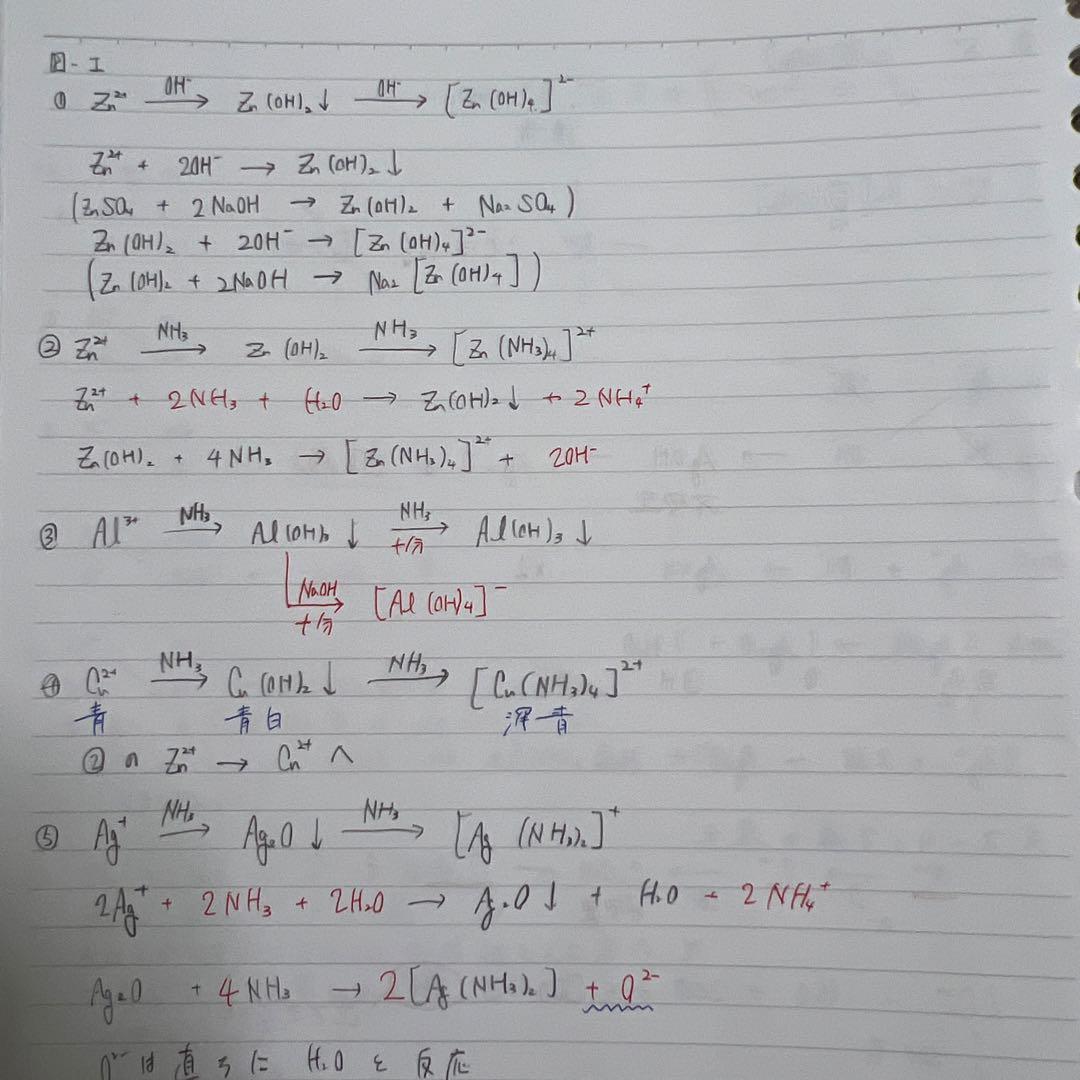 四-I
① Zn²⁺ —OH⁻→ Zn(OH)₂↓ —OH⁻→ [Zn(OH)₄]²⁻
Zn²⁺ + 2OH⁻ → Zn(OH)₂↓
(ZnSO₄ + 2NaOH → Zn(OH)₂ + Na₂SO₄)
Zn(OH)₂ + 2OH⁻ → [Zn(OH)₄]²⁻
(Zn(OH)₂ + 2NaOH → Na₂[Zn(OH)₄])
② Zn²⁺ —NH₃→ Zn(OH)₂ —NH₃→ [Zn(NH₃)₄]²⁺
Zn²⁺ + 2NH₃ + H₂O → Zn(OH)₂↓ + 2NH₄⁺
Zn(OH)₂ + 4NH₃ → [Zn(NH₃)₄]²⁺ + 2OH⁻
③ Al³⁺ —NH₃→ Al(OH)₃↓ —NH₃ 十分→ Al(OH)₃↓
—NaOH 十分→ [Al(OH)₄]⁻
④ Cu²⁺ —NH₃→ Cu(OH)₂↓ —NH₃→ [Cu(NH₃)₄]²⁺
青 青白 深青
②の Zn²⁺ → Cu²⁺ へ
⑤ Ag⁺ —NH₃→ Ag₂O↓ —NH₃→ [Ag(NH₃)₂]⁺
2Ag⁺ + 2NH₃ + 2H₂O → Ag₂O↓ + H₂O + 2NH₄⁺
Ag₂O + 4NH₃ → 2[Ag(NH₃)₂] + O²⁻
O²⁻は直ろに H₂O と反応